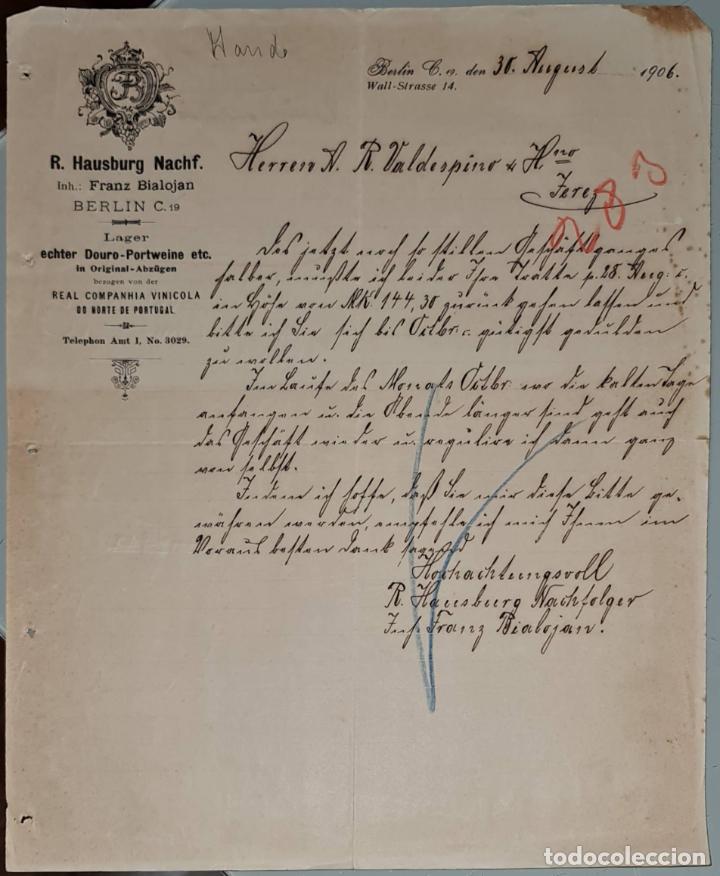 Hande
Berlin C. 19. den 30. August 1906.
Wall-Strasse 14.
R. Hausburg Nachf.
Inh.: Franz Bialojan
BERLIN C. 19
Lager
echter Douro-Portweine etc.
in Original-Abzügen
bezogen von der
REAL COMPANHIA VINICOLA
DO NORTE DE PORTUGAL.
Telephon Amt I, No. 3029.
Herren A. R. Valdespino & Hno
Jerez
Des jetzt noch so stillen Geschäftsganges
halber, mußte ich leider Ihre Tratte p. 28. Aug. c.
in Höhe von Mk. 144,30 zurück gehen lassen und
bitte ich Sie sich bis Octbr. c. gütigst gedulden
zu wollen.
Im Laufe des Monats Octbr. wo die kalten Tage
anfangen u. die Abende länger sind geht auch
das Geschäft wieder u. regulire ich dann ganz
von selbst.
Indem ich hoffe, daß Sie mir diese Bitte ge-
währen werden, empfehle ich mich Ihnen im
Voraus besten Dank sagend
Hochachtungsvoll
R. Hausburg Nachfolger
Inh. Franz Bialojan.
todocoleccion.net